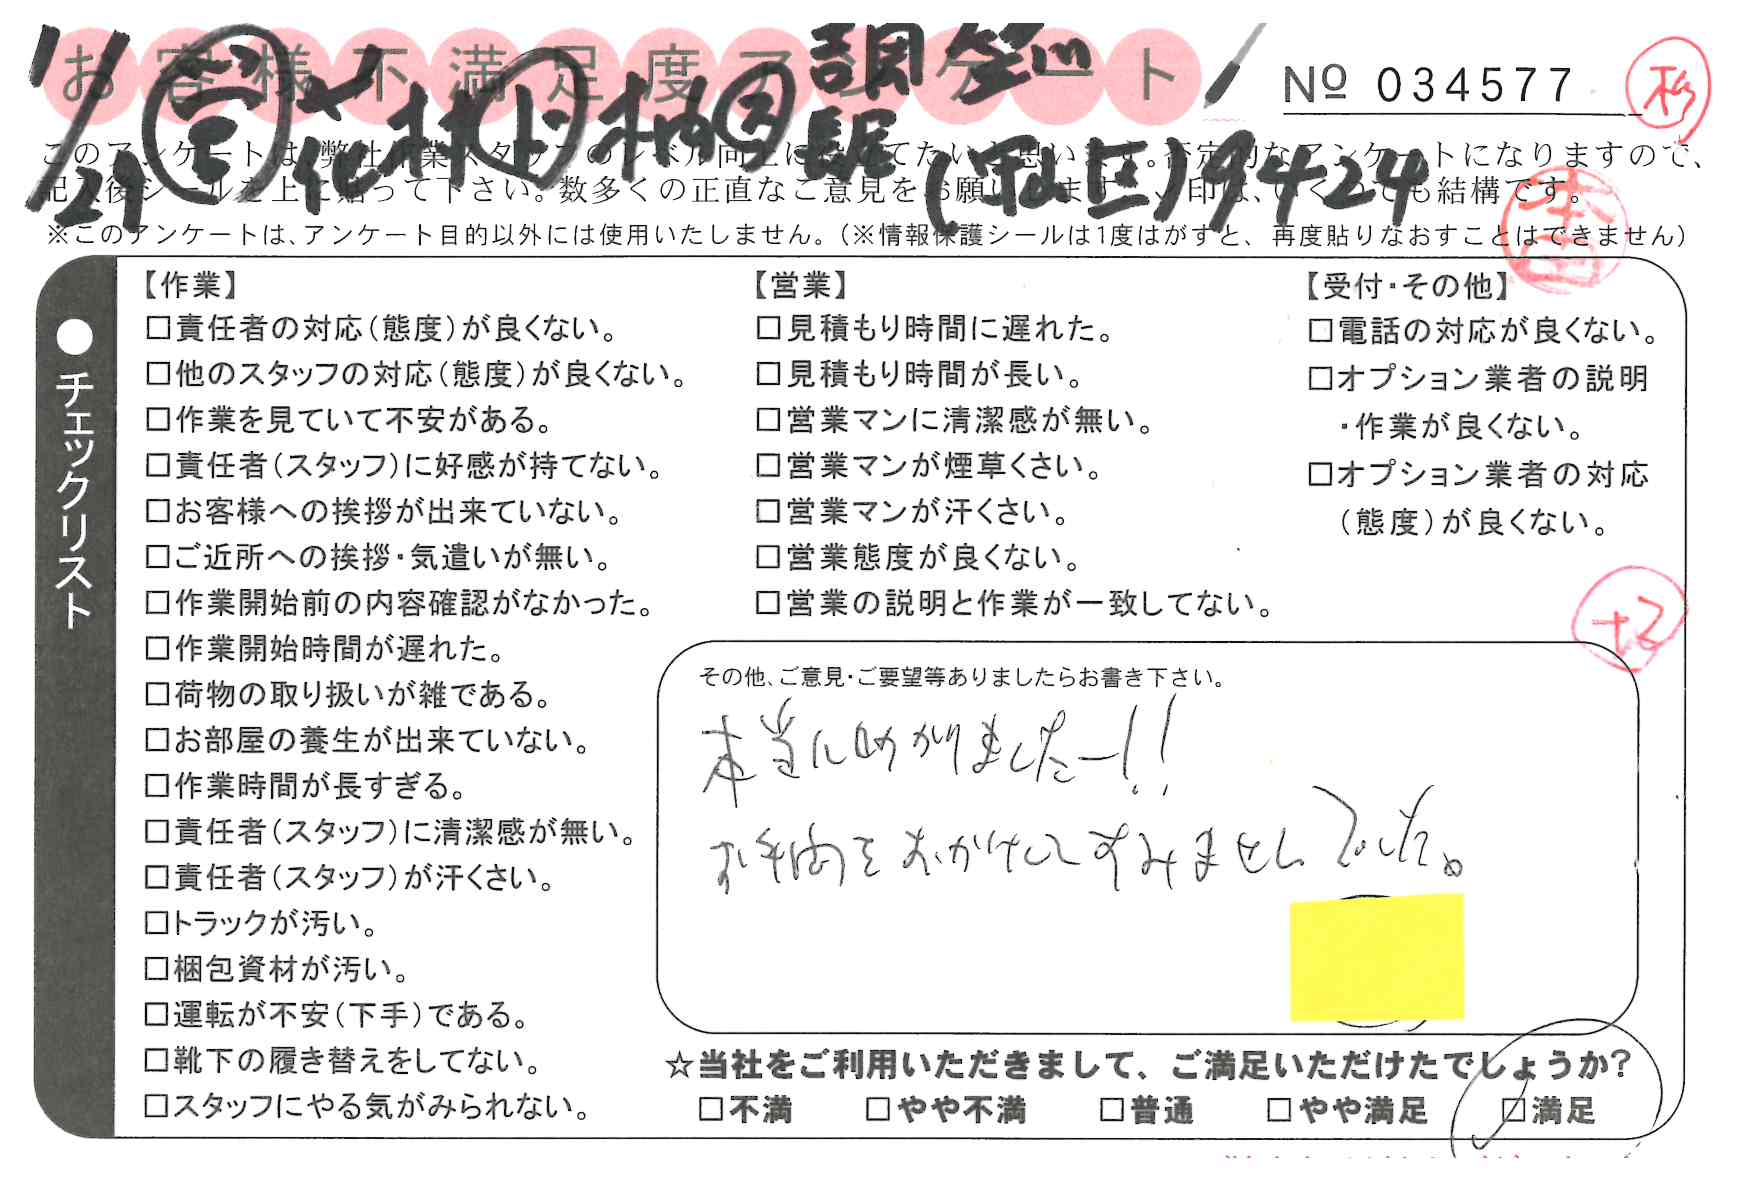 お客様不満足度アンケート
№ 034577
杉
11/29
このアンケートは、弊社作業スタッフのレベル向上に役立てたいと思います。否定的なアンケートになりますので、
記入後シールを上に貼って下さい。数多くの正直なご意見をお願いします。✓印は、いくつでも結構です。
9424
※このアンケートは、アンケート目的以外には使用いたしません。（※情報保護シールは1度はがすと、再度貼りなおすことはできません）
●チェックリスト
【作業】
□責任者の対応（態度）が良くない。
□他のスタッフの対応（態度）が良くない。
□作業を見ていて不安がある。
□責任者（スタッフ）に好感が持てない。
□お客様への挨拶が出来ていない。
□ご近所への挨拶・気遣いが無い。
□作業開始前の内容確認がなかった。
□作業開始時間が遅れた。
□荷物の取り扱いが雑である。
□お部屋の養生が出来ていない。
□作業時間が長すぎる。
□責任者（スタッフ）に清潔感が無い。
□責任者（スタッフ）が汗くさい。
□トラックが汚い。
□梱包資材が汚い。
□運転が不安（下手）である。
□靴下の履き替えをしてない。
□スタッフにやる気がみられない。
【営業】
□見積もり時間に遅れた。
□見積もり時間が長い。
□営業マンに清潔感が無い。
□営業マンが煙草くさい。
□営業マンが汗くさい。
□営業態度が良くない。
□営業の説明と作業が一致してない。
【受付・その他】
□電話の対応が良くない。
□オプション業者の説明
・作業が良くない。
□オプション業者の対応
（態度）が良くない。
+2
その他、ご意見・ご要望等ありましたらお書き下さい。
本当に助かりましたー!!
お手数をおかけしてすみませんでした。
☆当社をご利用いただきまして、ご満足いただけたでしょうか?
□不満 □やや不満 □普通 □やや満足 ☑満足